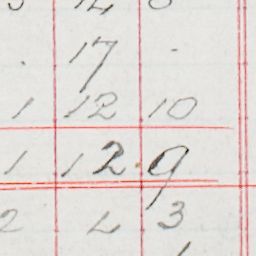 . 17 .
1 12 10
1 12 9
2 4 3